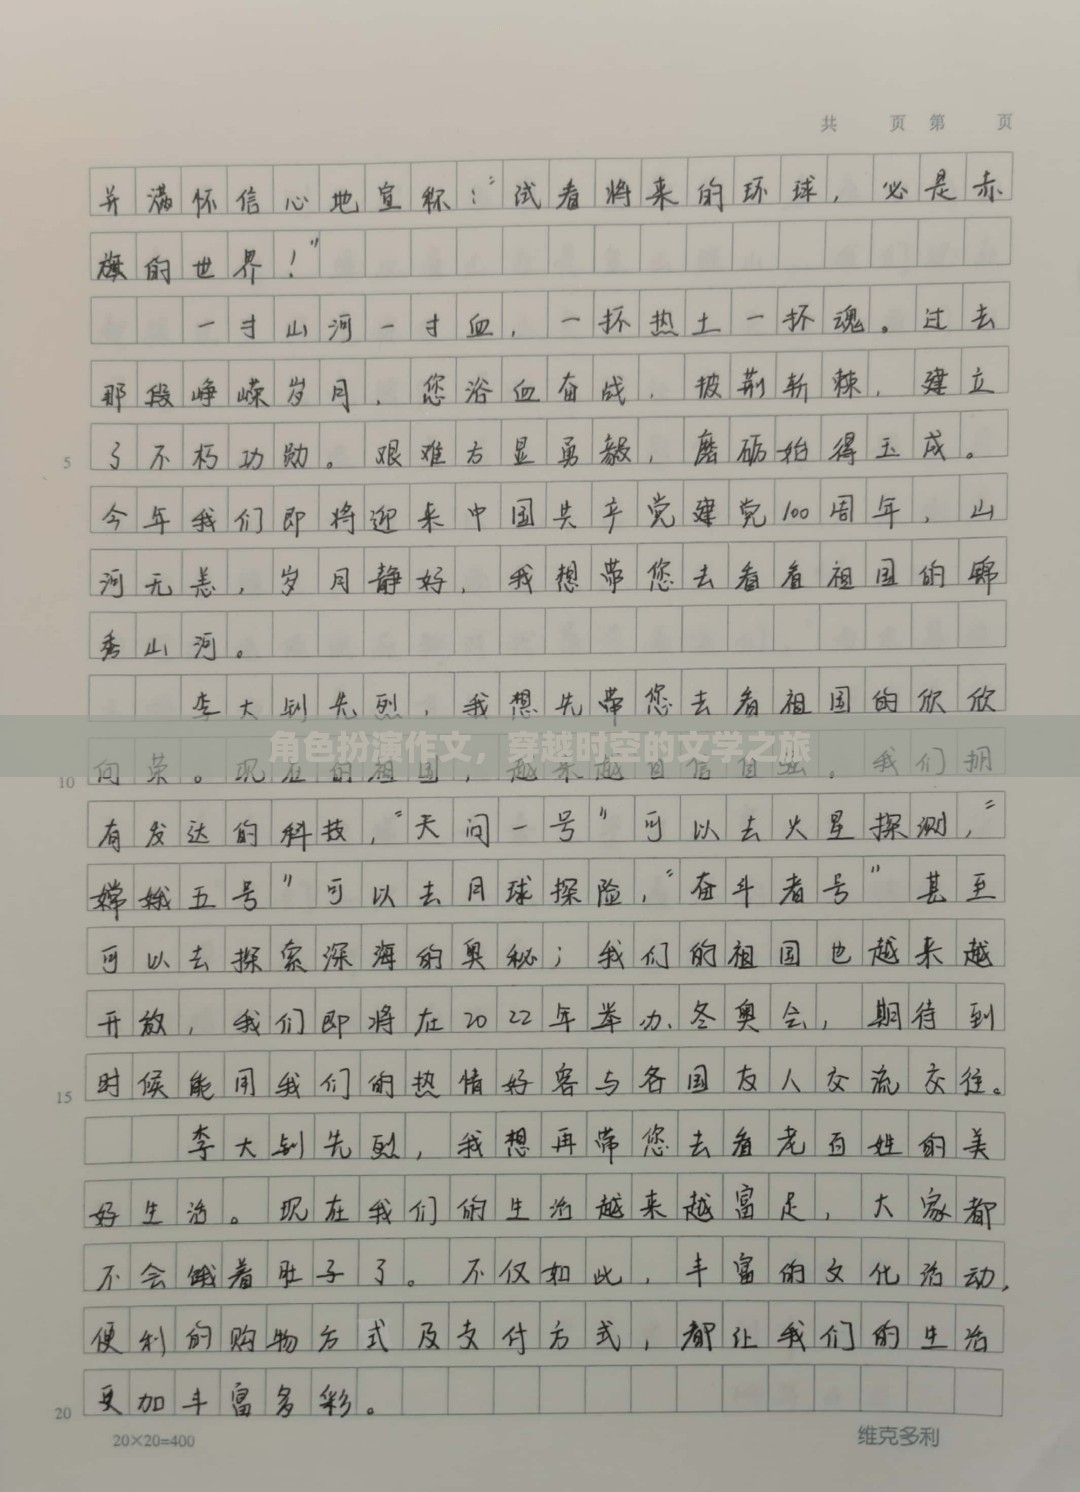 共 页 第 页
并满怀信心地宣称：“试看将来的环球，必是赤
旗的世界！”
一寸山河一寸血，一抔热土一抔魂。过去
那段峥嵘岁月，您浴血奋战，披荆斩棘，建立
5 了不朽功勋。艰难方显勇毅，磨砺始得玉成。
今年我们即将迎来中国共产党建党100周年，山
河无恙，岁月静好，我想带您去看看祖国的锦
秀山河。
李大钊先烈，我想先带您去看祖国的欣欣
角色扮演作文，穿越时空的文学之旅
10 向荣。现在的祖国，越来越自信自强，我们拥
有发达的科技，“天问一号”可以去火星探测，“
嫦娥五号”可以去月球探险，“奋斗者号”甚至
可以去探索深海的奥秘；我们的祖国也越来越
开放，我们即将在2022年举办冬奥会，期待到
15 时候能用我们的热情好客与各国友人交流交往。
李大钊先烈，我想再带您去看老百姓的美
好生活。现在我们的生活越来越富足，大家都
不会饿着肚子了。不仅如此，丰富的文化活动，
便利的购物方式及支付方式，都让我们的生活
20 更加丰富多彩。
20×20=400 维克多利